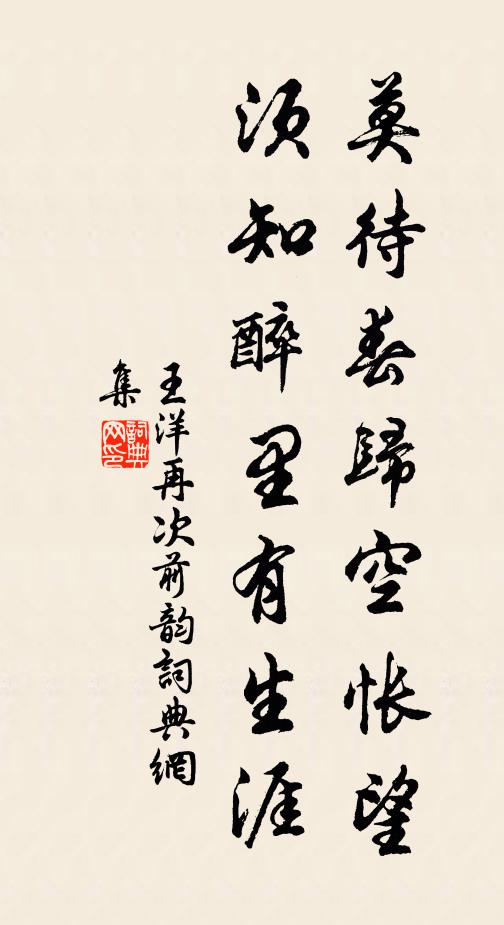 莫待春歸空悵望
須知醉里有生涯
王洋再次前韵詞典網
集
詞典網印